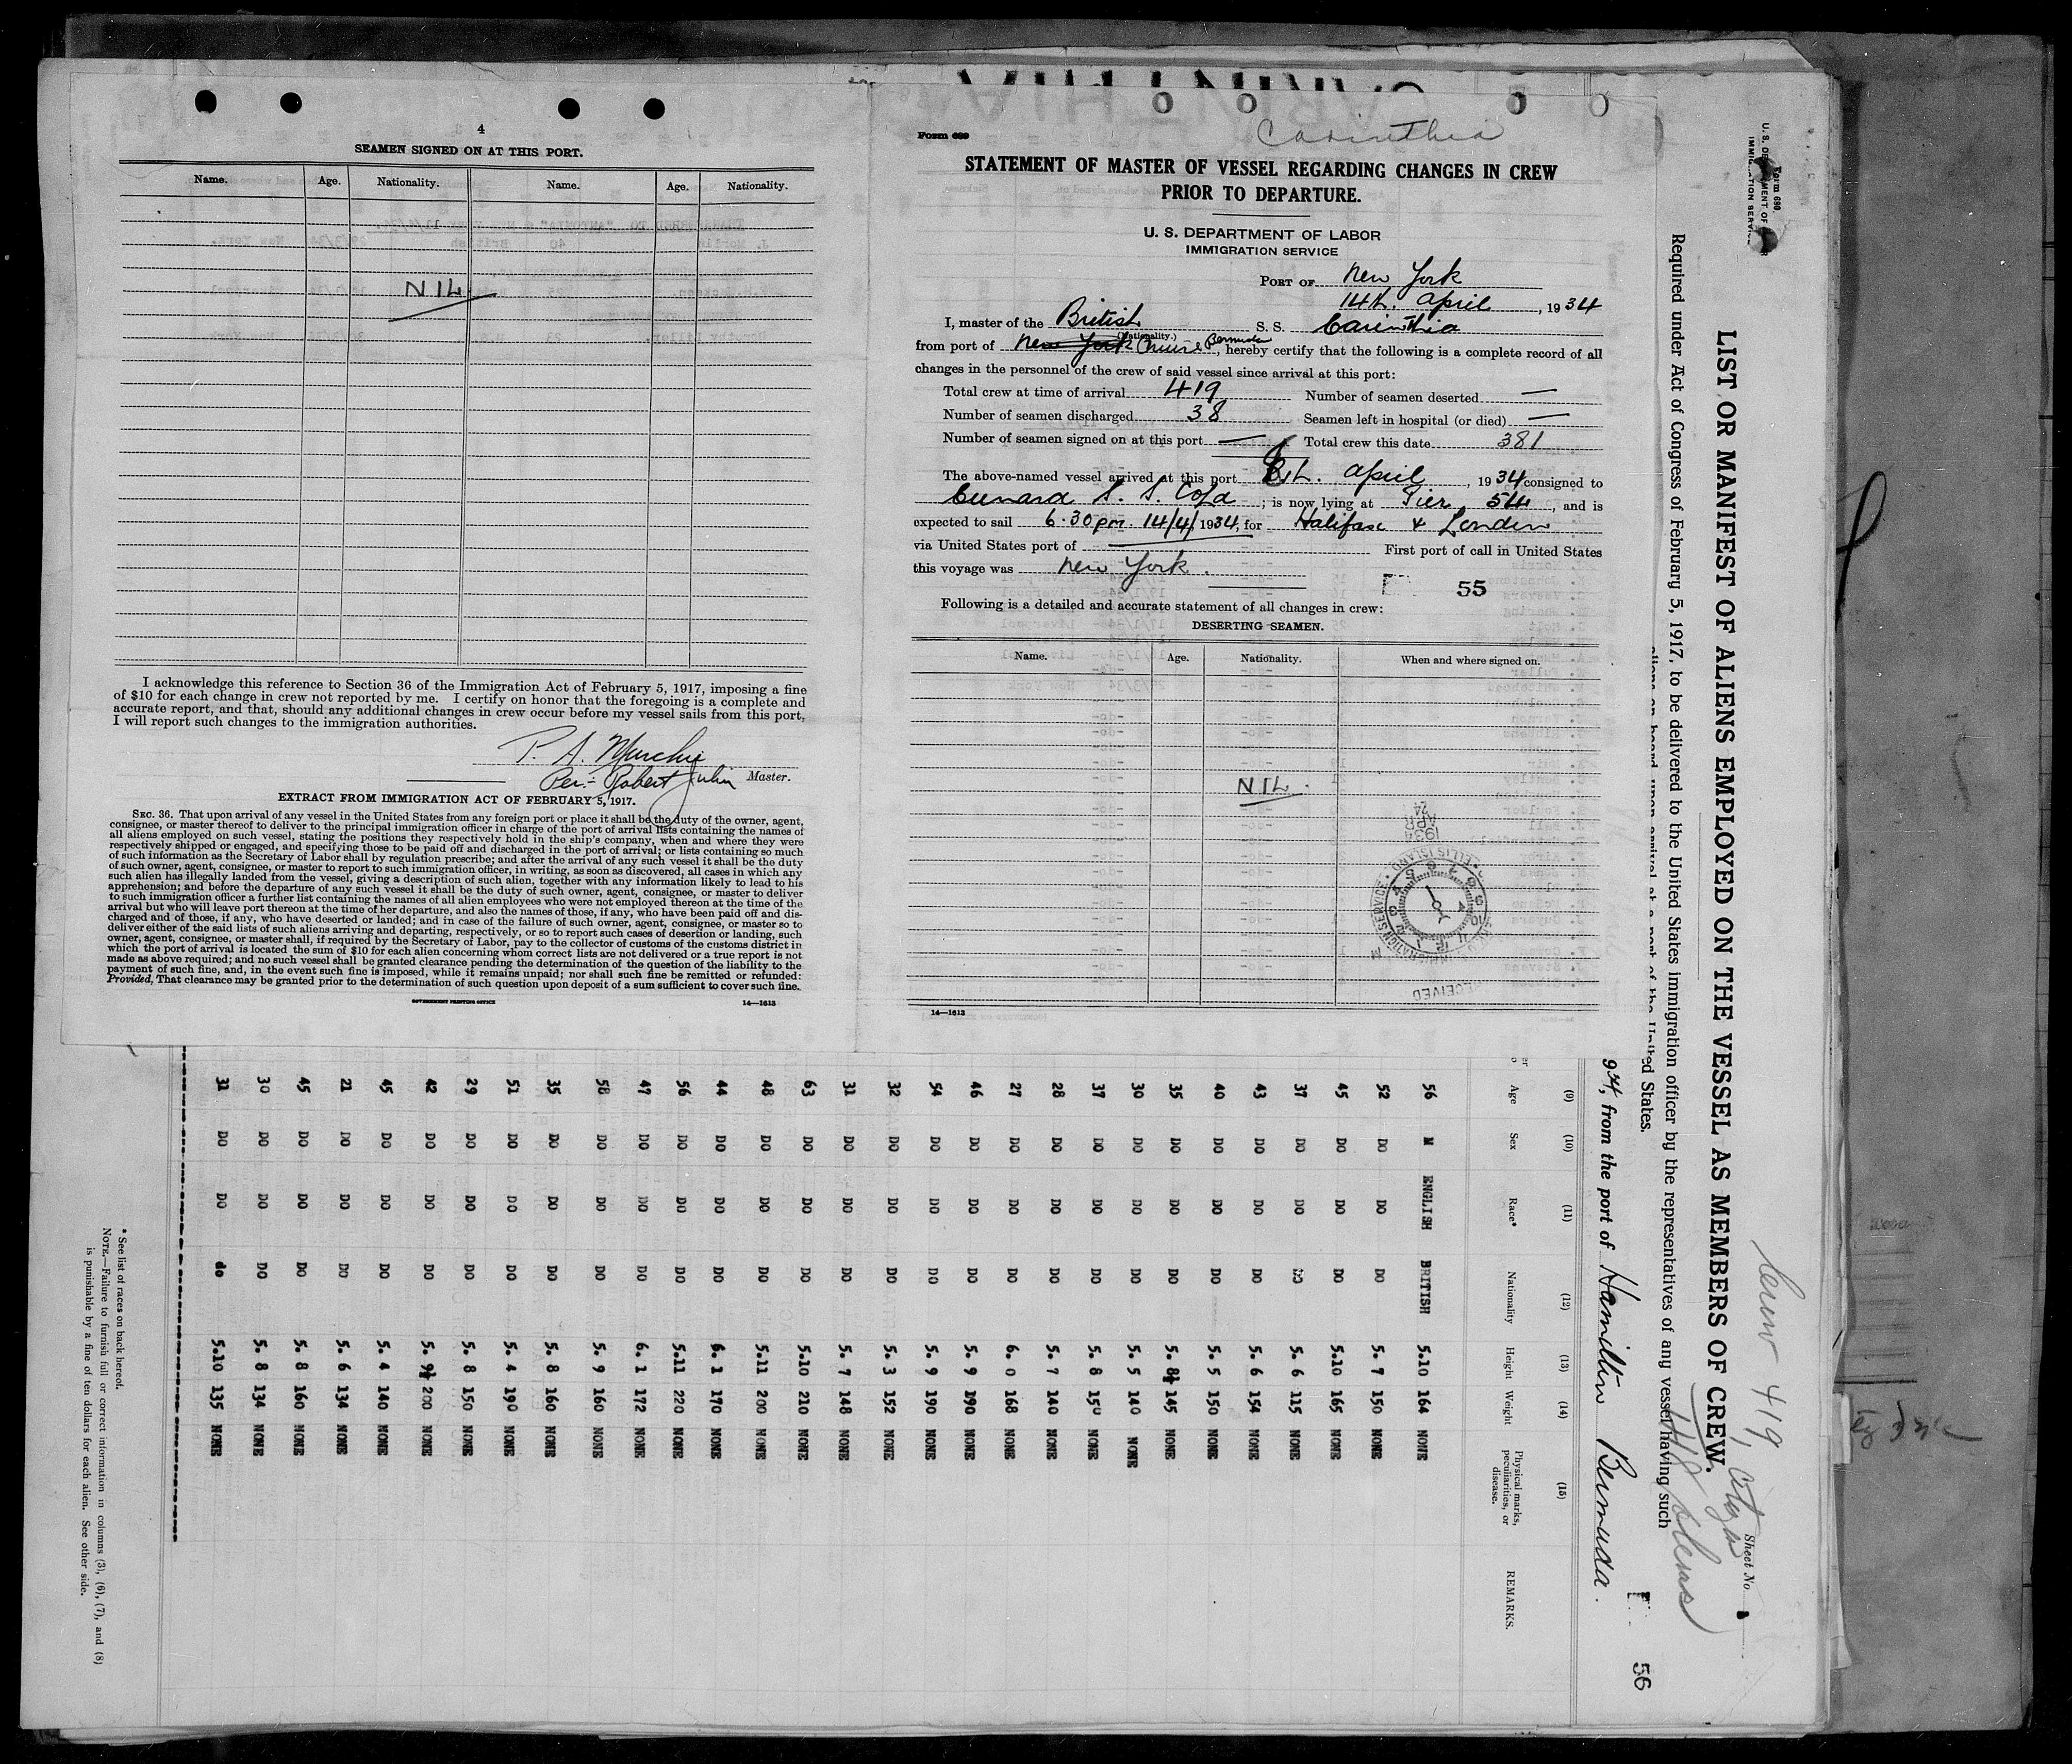 4
SEAMEN SIGNED ON AT THIS PORT.
Name. Age. Nationality. Name. Age. Nationality.
NIL
I acknowledge this reference to Section 36 of the Immigration Act of February 5, 1917, imposing a fine
of $10 for each change in crew not reported by me. I certify on honor that the foregoing is a complete and
accurate report, and that, should any additional changes in crew occur before my vessel sails from this port,
I will report such changes to the immigration authorities.
P. A. Murchie
Per:- Robert Julin Master.
EXTRACT FROM IMMIGRATION ACT OF FEBRUARY 5, 1917.
SEC. 36. That upon arrival of any vessel in the United States from any foreign port or place it shall be the duty of the owner, agent,
consignee, or master thereof to deliver to the principal immigration officer in charge of the port of arrival lists containing the names of
all aliens employed on such vessel, stating the positions they respectively hold in the ship's company, when and where they were
respectively shipped or engaged, and specifying those to be paid off and discharged in the port of arrival; or lists containing so much
of such information as the Secretary of Labor shall by regulation prescribe; and after the arrival of any such vessel it shall be the duty
of such owner, agent, consignee, or master to report to such immigration officer, in writing, as soon as discovered, all cases in which any
such alien has illegally landed from the vessel, giving a description of such alien, together with any information likely to lead to his
apprehension; and before the departure of any such vessel it shall be the duty of such owner, agent, consignee, or master to deliver
to such immigration officer a further list containing the names of all alien employees who were not employed thereon at the time of the
arrival but who will leave port thereon at the time of her departure, and also the names of those, if any, who have been paid off and dis-
charged and of those, if any, who have deserted or landed; and in case of the failure of such owner, agent, consignee, or master so to
deliver either of the said lists of such aliens arriving and departing, respectively, or so to report such cases of desertion or landing, such
owner, agent, consignee, or master shall, if required by the Secretary of Labor, pay to the collector of customs of the customs district in
which the port of arrival is located the sum of $10 for each alien concerning whom correct lists are not delivered or a true report is not
made as above required; and no such vessel shall be granted clearance pending the determination of the question of the liability to the
payment of such fine, and, in the event such fine is imposed, while it remains unpaid; nor shall such fine be remitted or refunded:
Provided, That clearance may be granted prior to the determination of such question upon deposit of a sum sufficient to cover such fine.
GOVERNMENT PRINTING OFFICE 14—1613
Form 689
Carinthia
STATEMENT OF MASTER OF VESSEL REGARDING CHANGES IN CREW
PRIOR TO DEPARTURE.
U. S. DEPARTMENT OF LABOR
IMMIGRATION SERVICE
PORT OF New York
14th. April, 1934
I, master of the British S. S. Carinthia
(Nationality.)
from port of New York Cruise Bermuda, hereby certify that the following is a complete record of all
changes in the personnel of the crew of said vessel since arrival at this port:
Total crew at time of arrival 419 Number of seamen deserted —
Number of seamen discharged 38 Seamen left in hospital (or died) —
Number of seamen signed on at this port — Total crew this date 381
The above-named vessel arrived at this port 8th. April, 1934 consigned to
Cunard S. S. Co Ld; is now lying at Pier 54, and is
expected to sail 6.30pm. 14/4/1934, for Halifax & London
via United States port of — First port of call in United States
this voyage was New York.
55
Following is a detailed and accurate statement of all changes in crew:
DESERTING SEAMEN.
Name. Age. Nationality. When and where signed on.
NIL.
1934
APR
24
ELLIS ISLAND
IMMIGRATION SERVICE
RECEIVED
14—1613
Form 680
U. S. DEPARTMENT OF LABOR
IMMIGRATION SERVICE
Crew 419
Sheet No
LIST OR MANIFEST OF ALIENS EMPLOYED ON THE VESSEL AS MEMBERS OF CREW.
Required under Act of Congress of February 5, 1917, to be delivered to the United States immigration officer by the representatives of any vessel having such
aliens on board upon arrival at a port of the United States.
56
934, from the port of Hamilton Bermuda.
(9) (10) (11) (12) (13) (14) (15)
Age Sex Race* Nationality Height Weight Physical marks, peculiarities, or disease. REMARKS.
56 M ENGLISH BRITISH 5.10 164 NONE
52 DO DO DO 5. 7 150 NONE
45 DO DO DO 5.10 165 NONE
37 DO DO DO 5. 6 115 NONE
43 DO DO DO 5. 6 154 NONE
40 DO DO DO 5. 5 150 NONE
35 DO DO DO 5. 8½ 145 NONE
30 DO DO DO 5. 5 140 NONE
37 DO DO DO 5. 8 150 NONE
28 DO DO DO 5. 7 140 NONE
27 DO DO DO 6. 0 168 NONE
46 DO DO DO 5. 9 190 NONE
54 DO DO DO 5. 9 190 NONE
32 DO DO DO 5. 3 152 NONE
31 DO DO DO 5. 7 148 NONE
63 DO DO DO 5.10 210 NONE
48 DO DO DO 5.11 200 NONE
44 DO DO DO 6. 1 170 NONE
56 DO DO DO 5.11 220 NONE
47 DO DO DO 6. 1 172 NONE
58 DO DO DO 5. 9 160 NONE
35 DO DO DO 5. 8 160 NONE
51 DO DO DO 5. 4 190 NONE
29 DO DO DO 5. 8 150 NONE
42 DO DO DO 5. 9½ 200 NONE
45 DO DO DO 5. 4 140 NONE
21 DO DO DO 5. 6 134 NONE
45 DO DO DO 5. 8 160 NONE
30 DO DO DO 5. 8 134 NONE
31 DO DO do 5.10 135 NONE
* See list of races on back hereof.
NOTE.—Failure to furnish full or correct information in columns (3), (6), (7), and (8)
is punishable by a fine of ten dollars for each alien. See other side.